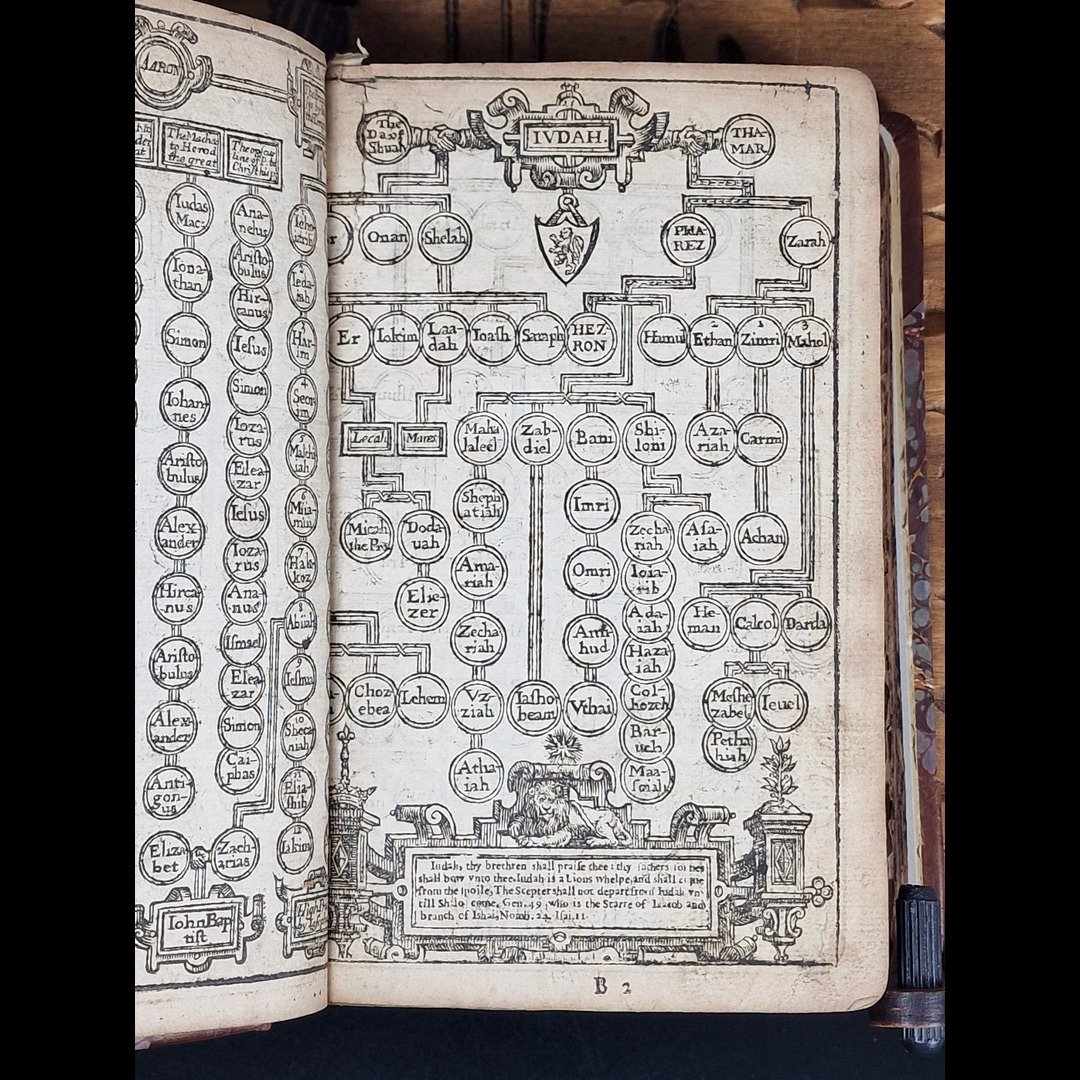 AARON
The Macha
to Herod
the great
Iudas
Mac-
Iona-
than
Simon
Iohan
nes
Aristo
bulus
Alex-
ander
Hirca-
nus
Aristo
bulus
Alex-
ander
Anti-
gon-
us
Ana-
nelus
Aristo-
bulus
Hir-
canus
Iesus
Simon
Ioza-
rus
Elea-
zar
Iesus
Ioza-
rus
Ana-
nus
Ismael
Elea-
zar
Simon
Cai-
phas
Eliza
bet
Zach
arias
Iohn Bap
tist
4
Seor
im
5
6
7
Hak-
koz
8
Abiiah
9
10
Sheca
niah
11
Elia-
shib
12
Iakim
The
Da of
Shuah
IVDAH.
THA-
MAR
Onan
Shelah
PHA-
REZ
Zarah
Er
Iokim
Laa-
dah
Ioash
Saraph
HEZ-
RON
Hamul
2
Ethan
1
Zimri
3
Mahol
Lecah
Mares
Maha
laleel
Zab-
diel
Bani
Shi-
loni
Aza-
riah
Carmi
Micah
the Pro
Doda-
uah
Sheph
atiah
Imri
Zecha
riah
Asa-
iah
Achan
Elie-
zer
Ama-
riah
Omri
Ioia-
rib
Zecha
riah
Ami-
hud
Ada-
iah
He-
man
Calcol
Darda
Haza
iah
Choz-
ebea
Lehem
Vz-
ziah
Iasho-
beam
Vthai
Col-
hozeh
Meshe-
zabel
Ieuel
Bar-
uch
Petha-
hiah
Atha-
iah
Maa-
seiah
Iudah, thy brethren shall praise thee: thy fathers sonnes
shall bow vnto thee. Iudah is a Lions whelpe, and shall come
from the spoile, The Scepter shall not depart from Iudah vn-
till Shilo come, Gen. 49, who is the Starre of Iacob and
branch of Ishai, Nomb. 24. Isai. 11.
B 2